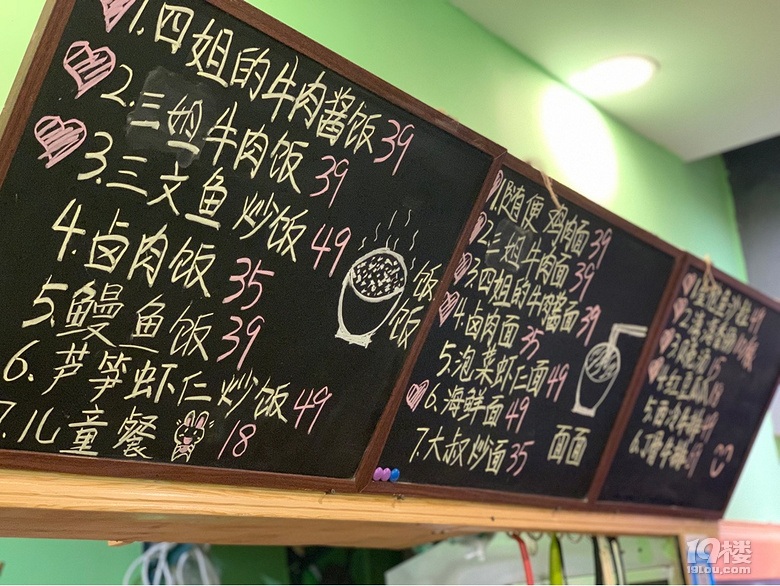 1.四姐的牛肉酱饭39
2.三姐牛肉饭39
3.三文鱼炒饭49
4.卤肉饭35
5.鳗鱼饭39
6.芦笋虾仁炒饭49
7.儿童餐18
饭
饭
1.随便鸡肉面39
2.三姐牛肉面39
3.四姐的牛肉酱面39
4.卤肉面35
5.泡菜虾仁面49
6.海鲜面49
7.大叔炒面35
面面
19楼
19lou.com